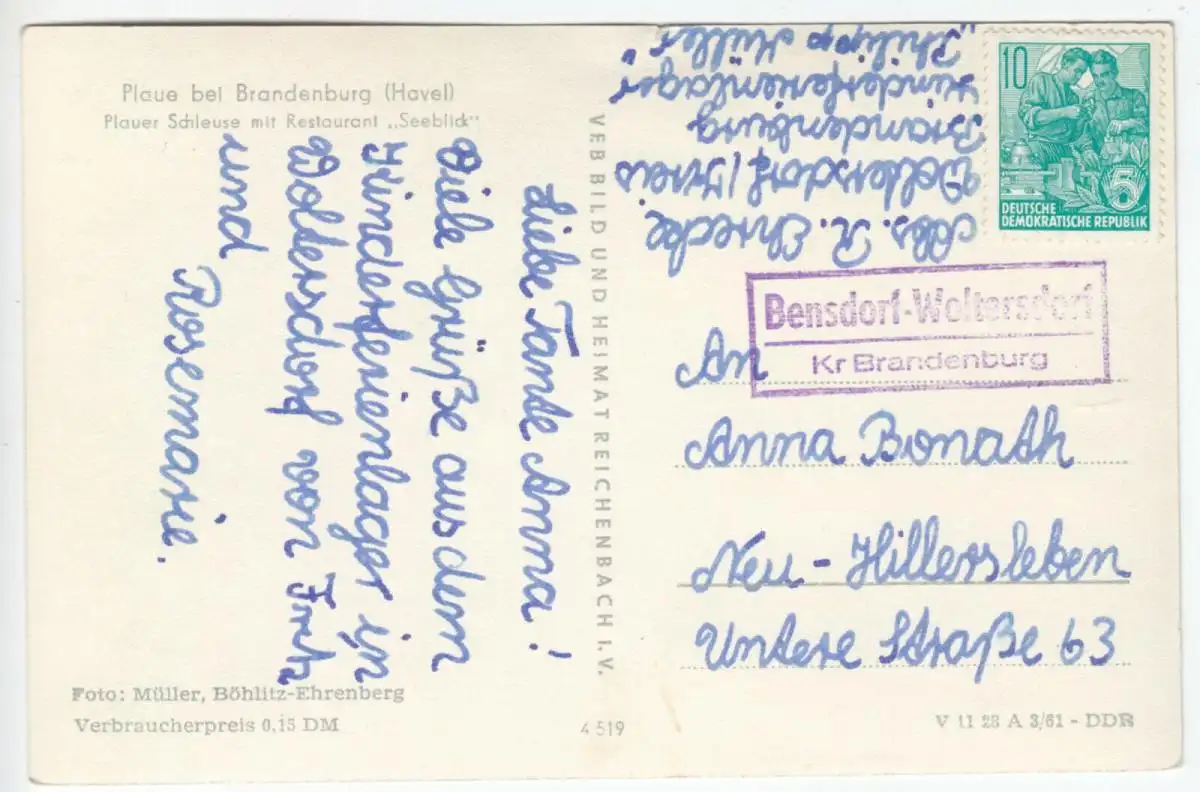 Plaue bei Brandenburg (Havel)
Plauer Schleuse mit Restaurant „Seeblick“
Liebe Tante Anna!
Viele Grüße aus dem
Kinderferienlager in
Woltersdorf von Fritz
und
Rosemarie.
VEB BILD UND HEIMAT REICHENBACH I. V.
Abs. R. Ehrecke
Woltersdorf/Kreis
Brandenburg
Kinderferienlager
„Philipp Müller“
10
5
DEUTSCHE
DEMOKRATISCHE REPUBLIK
Bensdorf-Woltersdorf
Kr Brandenburg
An
Anna Bonath
Neu-Hillersleben
Untere Straße 63
Foto: Müller, Böhlitz-Ehrenberg
Verbraucherpreis 0,15 DM
4519
V 11 28 A 3/61 - DDR